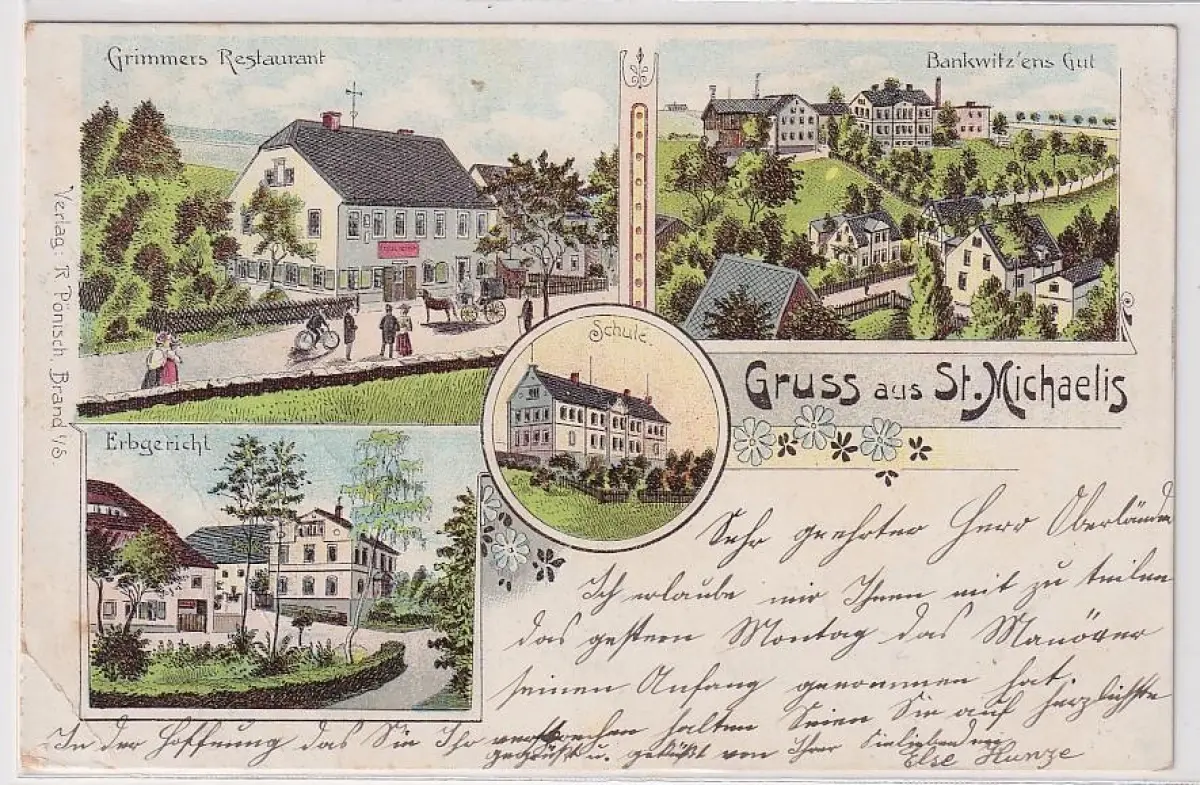 Grimmers Restaurant
Bankwitz'ens Gut
Verlag: R. Pönisch, Brand i/S.
Schule.
Gruss aus St. Michaelis
Erbgericht
Sehr geehrter Herr Oberländer
Ich erlaube mir Ihnen mit zu teilen
das gestern Montag das Manöver
seinen Anfang genommen hat.
In der Hoffnung das Sie Ihr versprechen halten Seien Sie auf herzlichste
gegrüßt u. geküßt von Ihrer
Else Hunze